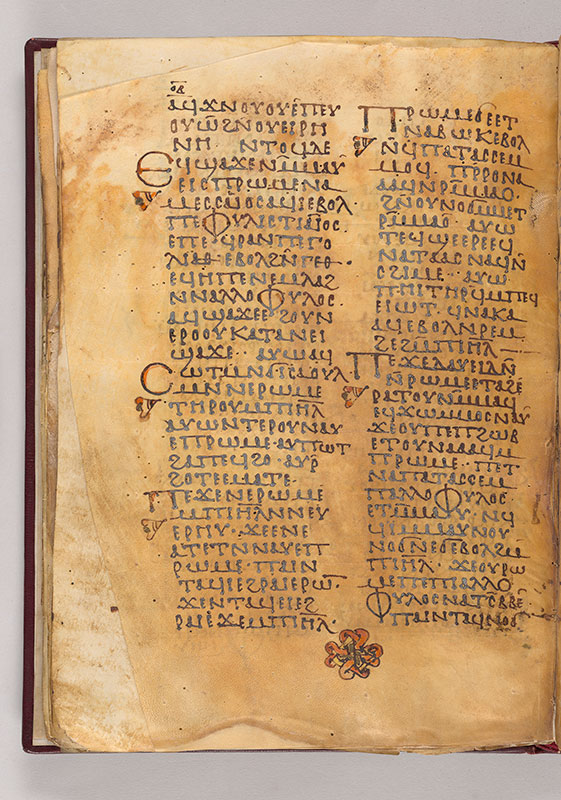 ⲟⲃ
ⲁϥϫⲛⲟⲩⲟⲩⲉⲡⲉⲩ
ⲟⲩⲱϩⲛⲟⲩⲉⲓⲣⲏ
ⲛⲏ ⲛⲧⲟϥⲇⲉ
ⲉϥϣⲁϫⲉⲛⲙⲙⲁⲩ
ⲉⲓⲥⲡⲣⲱⲙⲉⲛⲁ
ⲙⲉⲥⲥⲁⲓⲟⲥⲁϥⲓⲉⲃⲟⲗ
ⲡⲉⲫⲩⲗⲓⲥⲧⲓⲁⲓⲟⲥ
ⲉⲡⲉϥⲣⲁⲛⲡⲉⲅⲟ
ⲗⲓⲁⲑ ⲉⲃⲟⲗϩⲛⲅⲉⲑ
ⲉϥⲏⲡⲉⲛⲉⲙⲗⲁϩ
ⲛⲛⲁⲗⲗⲟⲫⲩⲗⲟⲥ
ⲁϥϣⲁϫⲉⲉϩⲟⲩⲛ
ⲉⲣⲟⲟⲩⲕⲁⲧⲁⲛⲉⲓ
ϣⲁϫⲉ· ⲁⲩⲱⲁϥ
ⲥⲱⲧⲙⲛϭⲓⲥⲁⲟⲩⲗ
ⲙⲛⲛⲉⲣⲱⲙⲉ
ⲧⲏⲣⲟⲩⲙⲡⲓⲏⲗ
ⲁⲩⲱⲛⲧⲉⲣⲟⲩⲛⲁⲩ
ⲉⲡⲣⲱⲙⲉ· ⲁⲩⲡⲱⲧ
ϩⲁⲡⲉϥϩⲟ· ⲁⲩⲣ
ϩⲟⲧⲉⲉⲙⲁⲧⲉ·
ⲡⲉϫⲉⲛⲉⲣⲱⲙⲉ
ⲙⲡⲓⲏⲗⲛⲛⲉⲩ
ⲉⲣⲏⲩ· ϫⲉⲉⲛⲉ
ⲁⲧⲉⲧⲛⲛⲁⲩⲉⲡ
ⲣⲱⲙⲉ· ⲡⲁⲓⲛ
ⲧⲁϥⲓⲉϩⲣⲁⲓⲉⲣⲱⲧⲛ
ϫⲉⲛⲧⲁϥⲉⲓⲉϩ
ⲣⲁⲓⲉϫⲉⲙⲡⲓⲏⲗ·
ⲡⲣⲱⲙⲉϭⲉⲉⲧ
ⲛⲁⲃⲱⲕⲉⲃⲟⲗ
ⲛϥⲡⲁⲧⲁⲥⲥⲉⲙ
ⲙⲟϥ· ⲡⲣⲣⲟⲛⲁ
ⲁⲁϥⲛⲣⲙⲙⲁⲟ·
ϩⲛⲟⲩⲛⲟϭⲙⲙⲛⲧ
ⲣⲙⲙⲁⲟ· ⲁⲩⲱ
ⲧⲉϥϣⲉⲉⲣⲉϥ
ⲛⲁⲧⲁⲁⲥⲛⲁϥⲛ
ⲥϩⲓⲙⲉ· ⲁⲩⲱ
ⲡⲏⲓⲧⲏⲣϥⲙⲡⲉϥ
ⲉⲓⲱⲧ· ϥⲛⲁⲕⲁ
ⲁϥⲉⲃⲟⲗⲛⲣⲉⲙ
ϩⲉϩⲙⲡⲓⲏⲗ
ⲡⲉϫⲉⲇⲁⲩⲉⲓⲇⲛ
ⲛⲣⲱⲙⲉⲉⲧⲁϩⲉ
ⲣⲁⲧⲟⲩⲛⲙⲙⲁϥ
ⲉϥϫⲱⲙⲙⲟⲥⲛⲁⲩ
ϫⲉⲟⲩⲡⲉⲡϩⲱⲃ
ⲉⲧⲟⲩⲛⲁⲁⲁϥⲙ
ⲡⲣⲱⲙⲉ· ⲡⲉⲧ
ⲛⲁⲡⲁⲧⲁⲥⲥⲉⲙ
ⲡⲁⲗⲗⲟⲫⲩⲗⲟⲥ
ⲉⲧⲙⲙⲁⲩ· ⲛϥ
ϥⲓⲙⲙⲁⲩⲛⲟⲩ
ⲛⲟϭⲛⲉϭⲉⲃⲟⲗϩⲙ
ⲡⲓⲏⲗ· ϫⲉⲟⲩⲣⲱ
ⲙⲉⲡⲉⲡⲓⲁⲗⲗⲟ
ⲫⲩⲗⲟⲥⲛⲁⲧⲥⲃⲃⲉ·
ⲡⲁⲓⲛⲧⲁϥⲛⲟϭ